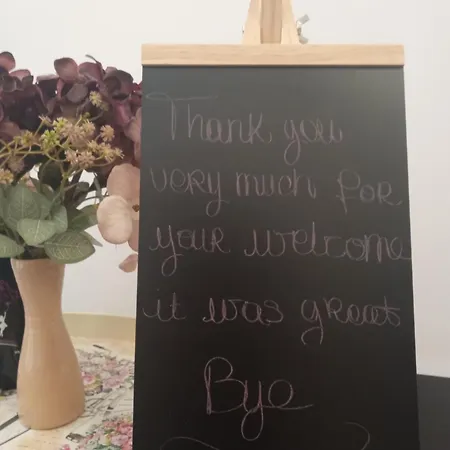 Thank you
very much, for
your welcome
it was great
Bye